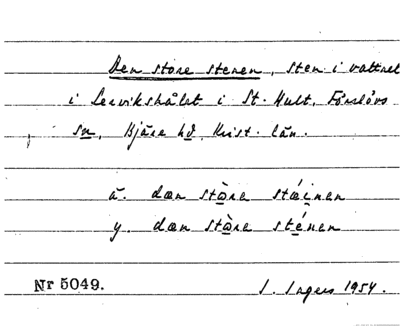 Den store stenen, sten i vattnet
i Lervikshålet i St. Hult, Förslövs
sn, Bjäre hd, Krist. län.
ä. dæn stòre stáinen
y. dæn stòre sténen
Nr 5049. I. Ingers 1954.